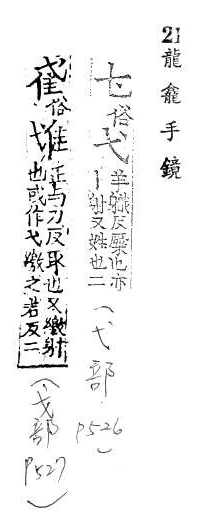 21龍龕手鏡
俗弋羊職反橜也亦
丨射又姓也二
(弋部
P526)
俗
正与刀反取也又繳射
也或作弋繳之若反二
(戈部
P527)